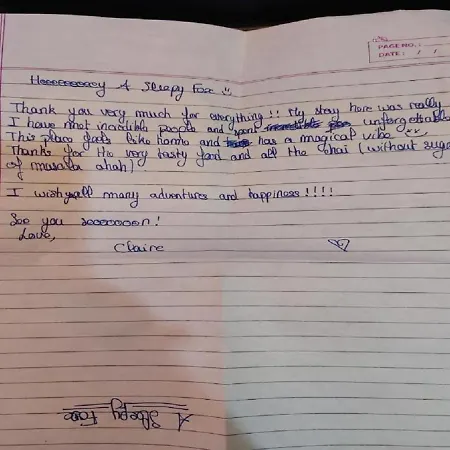 PAGE NO.:
DATE: / /
Hooooooooey A Sleepy Foxe
Thank you very much for everything!! My stay here was really
I have met incredible people and spent unforgettable
This place feels like home and has a magical vibe
Thanks for the very tasty food and all the Chai (without suga
of masala ahah)
I wish yall many adventures and happiness!!!!
See you sooooooon!
Love,
Claire
A Sleepy Foxe